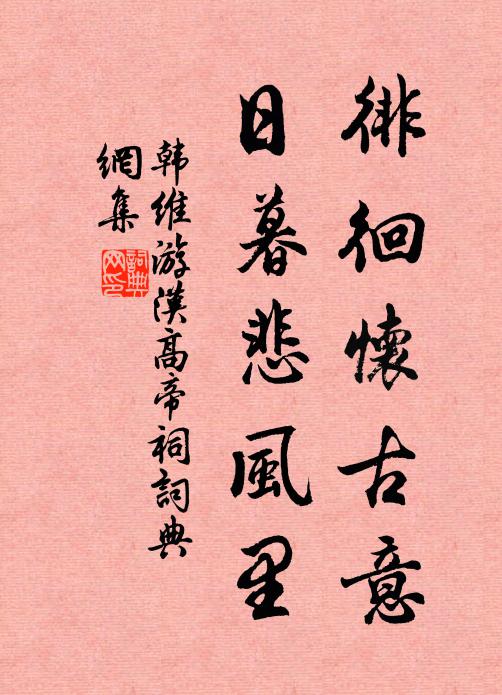 徘徊懷古意
日暮悲風里
韩維游漢高帝祠詞典
網集
詞典网印